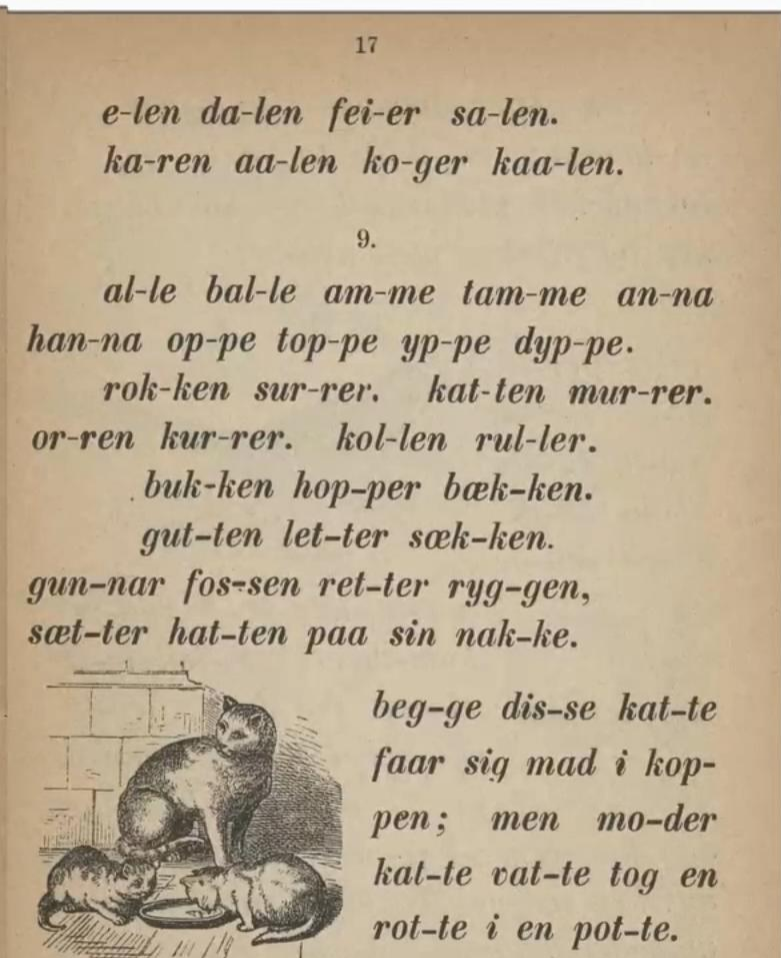 17
e-len da-len fei-er sa-len.
ka-ren aa-len ko-ger kaa-len.
9.
al-le bal-le am-me tam-me an-na
han-na op-pe top-pe yp-pe dyp-pe.
rok-ken sur-rer. kat-ten mur-rer.
or-ren kur-rer. kol-len rul-ler.
buk-ken hop-per bæk-ken.
gut-ten let-ter sæk-ken.
gun-nar fos-sen ret-ter ryg-gen,
sæt-ter hat-ten paa sin nak-ke.
beg-ge dis-se kat-te
faar sig mad i kop-
pen; men mo-der
kat-te vat-te tog en
rot-te i en pot-te.